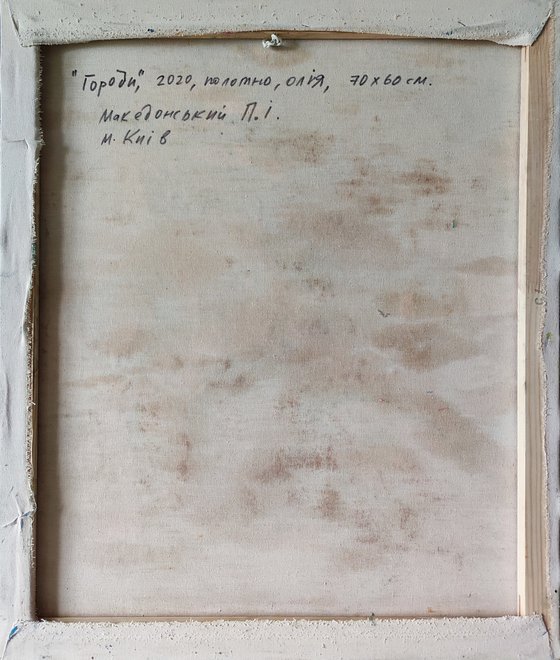 "Городи", 2020, полотно, олія, 70 х 60 см.
Македонський П.І.
м. Київ